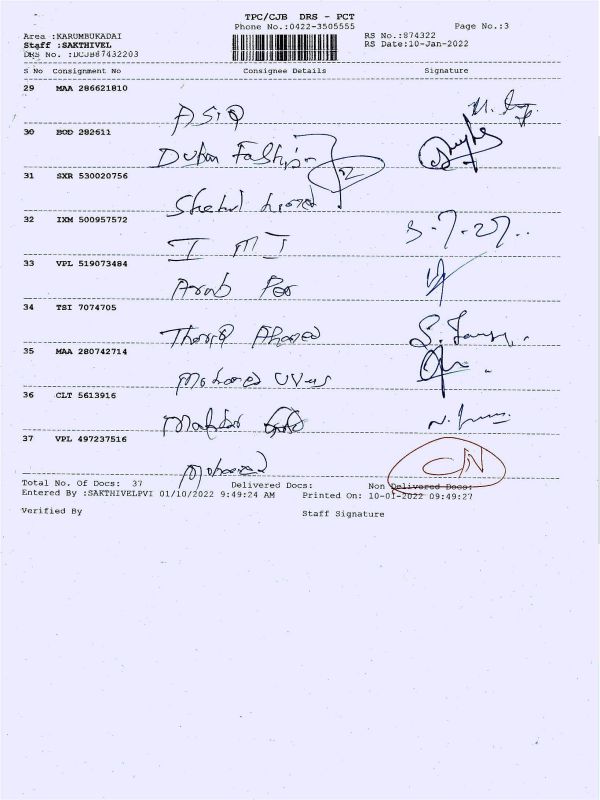 TPC/CJB DRS - PCT
Phone No.:0422-3505555 Page No.:3
Area :KARUMBUKADAI RS No.:874322
Staff :SAKTHIVEL RS Date:10-Jan-2022
DRS No. :DCJB87432203
S No Consignment No Consignee Details Signature
29 MAA 286621810
ASIQ
30 BOD 282611
Duban Fashion
31 SXR 530020756
32 IXM 500957572
I M I
33 VPL 519073484
Arab
34 TSI 7074705
Thoriq Ahamed
35 MAA 280742714
Mohamed
36 CLT 5613916
37 VPL 497237516
Mohammed CN
Total No. Of Docs: 37 Delivered Docs: Non Delivered Docs:
Entered By :SAKTHIVELPVI 01/10/2022 9:49:24 AM Printed On: 10-01-2022 09:49:27
Verified By Staff Signature